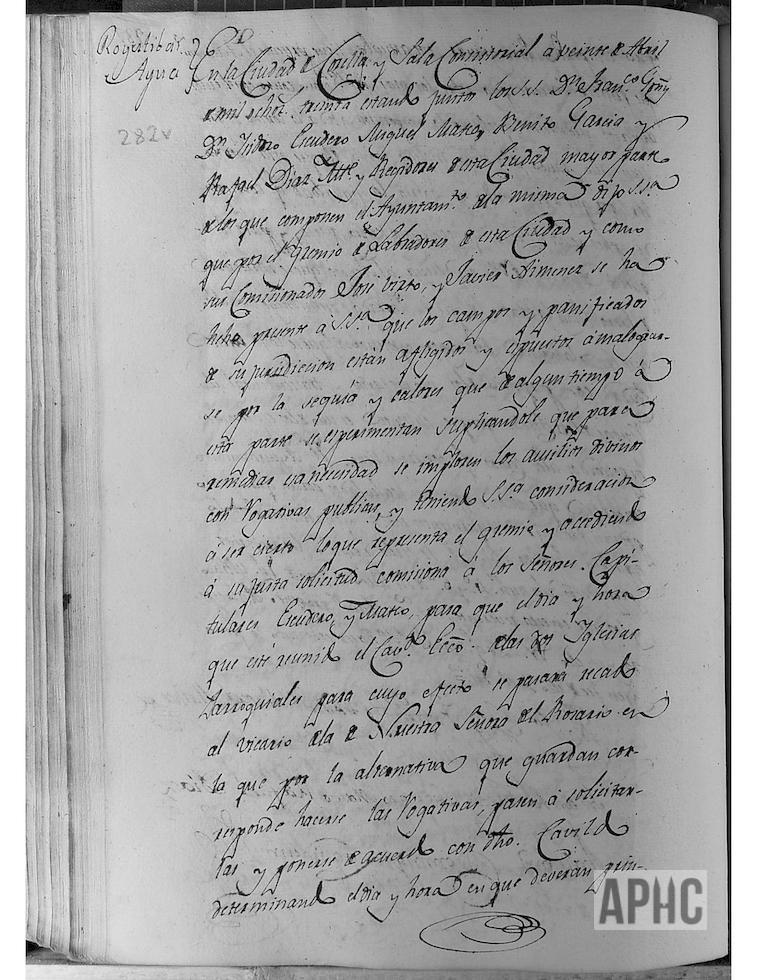 Rogatibas
Agua
26
282v
En la Ciudad de Corella y Sala Consistorial á veinte de Abril
de mil ochot. treinta estando juntos los S.S. Dn. Fran.co Goñy
Dn. Isidro Escudero Miguel Mateo, Benito Garcia y
Rafael Diaz Ttte. y Regidores de esta Ciudad mayor parte
de los que componen el Ayuntam.to de la misma dijo S.Sa.
que por el Gremio de Labradores de esta Ciudad y como
sus Comisionados Jose Virto, y Javier Ximenez se ha
hecho presente á S.Sa. que los campos y panificados
de su jurisdicion están afligidos y espuestos á malograr-
se por la sequía y calores que de algun tiempo á
esta parte se esperimentan suplicandole que para
remediar esa necesidad se imploren los ausilios divinos
con Rogativas publicas, y teniendo S.Sa. consideracion
á ser cierto lo que representa el gremio y accediendo
á su justa solicitud comisiona á los Señores Capi-
tulares Escudero, y Mateo, para que el dia y hora
que esté reunido el Cav.do Ecco. de las dos Yglesias
Parroquiales para cuyo efecto se pasará recado
al Vicario de la de Nuestra Señora del Rosario en
la que por la alternativa que guardan cor-
responde hacerse las Rogativas, pasen á solicitar-
las y ponerse de acuerdo con dho. Cavildo
determinando el dia y hora en que deverán prin-
APHC